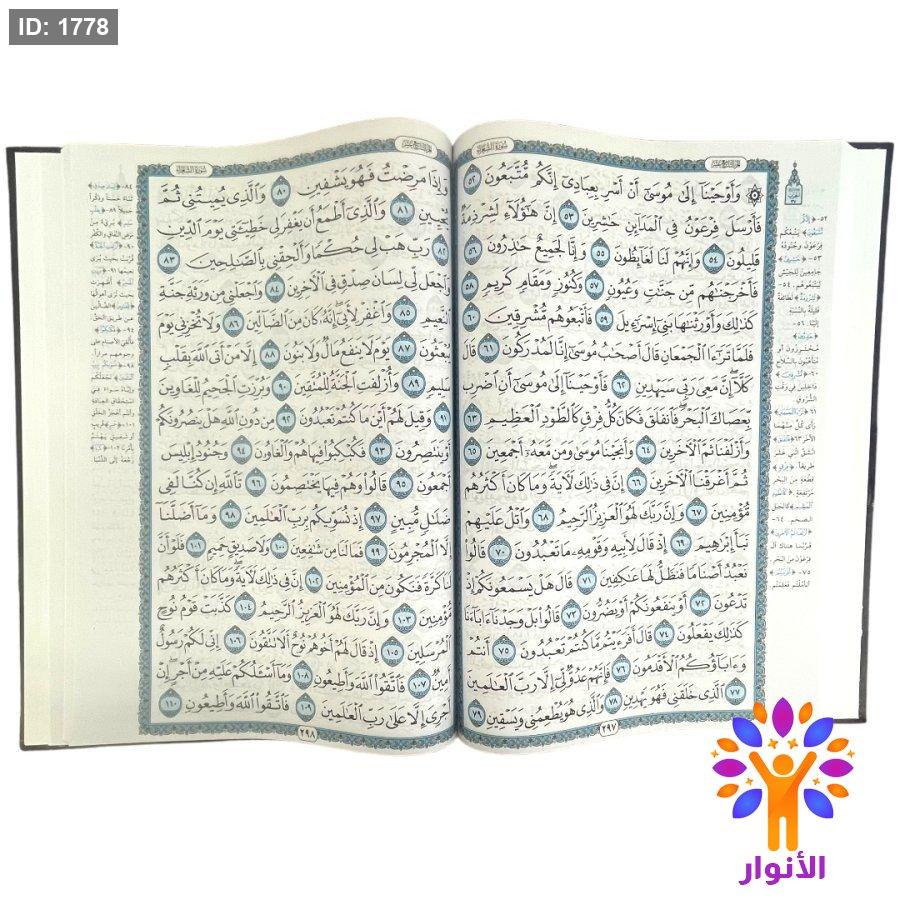 ID: 1778
سورة الشعراء
۞ وَأَوْحَيْنَا إِلَىٰ مُوسَىٰ أَنْ أَسْرِ بِعِبَادِي إِنَّكُم مُّتَّبَعُونَ ٥٢
فَأَرْسَلَ فِرْعَوْنُ فِي الْمَدَائِنِ حَاشِرِينَ ٥٣ إِنَّ هَٰؤُلَاءِ لَشِرْذِمَةٌ
قَلِيلُونَ ٥٤ وَإِنَّهُمْ لَنَا لَغَائِظُونَ ٥٥ وَإِنَّا لَجَمِيعٌ حَاذِرُونَ ٥٦
فَأَخْرَجْنَاهُم مِّن جَنَّاتٍ وَعُيُونٍ ٥٧ وَكُنُوزٍ وَمَقَامٍ كَرِيمٍ ٥٨
كَذَٰلِكَ وَأَوْرَثْنَاهَا بَنِي إِسْرَائِيلَ ٥٩ فَأَتْبَعُوهُم مُّشْرِقِينَ ٦٠
فَلَمَّا تَرَاءَى الْجَمْعَانِ قَالَ أَصْحَابُ مُوسَىٰ إِنَّا لَمُدْرَكُونَ ٦١ قَالَ
كَلَّا إِنَّ مَعِيَ رَبِّي سَيَهْدِينِ ٦٢ فَأَوْحَيْنَا إِلَىٰ مُوسَىٰ أَنِ اضْرِب
بِّعَصَاكَ الْبَحْرَ فَانفَلَقَ فَكَانَ كُلُّ فِرْقٍ كَالطَّوْدِ الْعَظِيمِ ٦٣
وَأَزْلَفْنَا ثَمَّ الْآخَرِينَ ٦٤ وَأَنجَيْنَا مُوسَىٰ وَمَن مَّعَهُ أَجْمَعِينَ ٦٥
ثُمَّ أَغْرَقْنَا الْآخَرِينَ ٦٦ إِنَّ فِي ذَٰلِكَ لَآيَةً وَمَا كَانَ أَكْثَرُهُم
مُّؤْمِنِينَ ٦٧ وَإِنَّ رَبَّكَ لَهُوَ الْعَزِيزُ الرَّحِيمُ ٦٨ وَاتْلُ عَلَيْهِمْ
نَبَأَ إِبْرَاهِيمَ ٦٩ إِذْ قَالَ لِأَبِيهِ وَقَوْمِهِ مَا تَعْبُدُونَ ٧٠ قَالُوا
نَعْبُدُ أَصْنَامًا فَنَظَلُّ لَهَا عَاكِفِينَ ٧١ قَالَ هَلْ يَسْمَعُونَكُمْ إِذْ
تَدْعُونَ ٧٢ أَوْ يَنفَعُونَكُمْ أَوْ يَضُرُّونَ ٧٣ قَالُوا بَلْ وَجَدْنَا آبَاءَنَا
كَذَٰلِكَ يَفْعَلُونَ ٧٤ قَالَ أَفَرَأَيْتُم مَّا كُنتُمْ تَعْبُدُونَ ٧٥ أَنتُمْ
وَآبَاؤُكُمُ الْأَقْدَمُونَ ٧٦ فَإِنَّهُمْ عَدُوٌّ لِّي إِلَّا رَبَّ الْعَالَمِينَ
٧٧ الَّذِي خَلَقَنِي فَهُوَ يَهْدِينِ ٧٨ وَالَّذِي هُوَ يُطْعِمُنِي وَيَسْقِينِ ٧٩
٢٩٧
سورة الشعراء
وَإِذَا مَرِضْتُ فَهُوَ يَشْفِينِ ٨٠ وَالَّذِي يُمِيتُنِي ثُمَّ
يُحْيِينِ ٨١ وَالَّذِي أَطْمَعُ أَن يَغْفِرَ لِي خَطِيئَتِي يَوْمَ الدِّينِ
٨٢ رَبِّ هَبْ لِي حُكْمًا وَأَلْحِقْنِي بِالصَّالِحِينَ ٨٣
وَاجْعَل لِّي لِسَانَ صِدْقٍ فِي الْآخِرِينَ ٨٤ وَاجْعَلْنِي مِن وَرَثَةِ جَنَّةِ
النَّعِيمِ ٨٥ وَاغْفِرْ لِأَبِي إِنَّهُ كَانَ مِنَ الضَّالِّينَ ٨٦ وَلَا تُخْزِنِي يَوْمَ
يُبْعَثُونَ ٨٧ يَوْمَ لَا يَنفَعُ مَالٌ وَلَا بَنُونَ ٨٨ إِلَّا مَنْ أَتَى اللَّهَ بِقَلْبٍ
سَلِيمٍ ٨٩ وَأُزْلِفَتِ الْجَنَّةُ لِلْمُتَّقِينَ ٩٠ وَبُرِّزَتِ الْجَحِيمُ لِلْغَاوِينَ
٩١ وَقِيلَ لَهُمْ أَيْنَ مَا كُنتُمْ تَعْبُدُونَ ٩٢ مِن دُونِ اللَّهِ هَلْ يَنصُرُونَكُمْ
أَوْ يَنتَصِرُونَ ٩٣ فَكُبْكِبُوا فِيهَا هُمْ وَالْغَاوُونَ ٩٤ وَجُنُودُ إِبْلِيسَ
أَجْمَعُونَ ٩٥ قَالُوا وَهُمْ فِيهَا يَخْتَصِمُونَ ٩٦ تَاللَّهِ إِن كُنَّا لَفِي
ضَلَالٍ مُّبِينٍ ٩٧ إِذْ نُسَوِّيكُم بِرَبِّ الْعَالَمِينَ ٩٨ وَمَا أَضَلَّنَا
إِلَّا الْمُجْرِمُونَ ٩٩ فَمَا لَنَا مِن شَافِعِينَ ١٠٠ وَلَا صَدِيقٍ حَمِيمٍ ١٠١ فَلَوْ أَنَّ
لَنَا كَرَّةً فَنَكُونَ مِنَ الْمُؤْمِنِينَ ١٠٢ إِنَّ فِي ذَٰلِكَ لَآيَةً وَمَا كَانَ أَكْثَرُهُم
مُّؤْمِنِينَ ١٠٣ وَإِنَّ رَبَّكَ لَهُوَ الْعَزِيزُ الرَّحِيمُ ١٠٤ كَذَّبَتْ قَوْمُ نُوحٍ
الْمُرْسَلِينَ ١٠٥ إِذْ قَالَ لَهُمْ أَخُوهُمْ نُوحٌ أَلَا تَتَّقُونَ ١٠٦ إِنِّي لَكُمْ رَسُولٌ
أَمِينٌ ١٠٧ فَاتَّقُوا اللَّهَ وَأَطِيعُونِ ١٠٨ وَمَا أَسْأَلُكُمْ عَلَيْهِ مِنْ أَجْرٍ إِنْ
أَجْرِيَ إِلَّا عَلَىٰ رَبِّ الْعَالَمِينَ ١٠٩ فَاتَّقُوا اللَّهَ وَأَطِيعُونِ ١١٠
٢٩٨
الأنوار